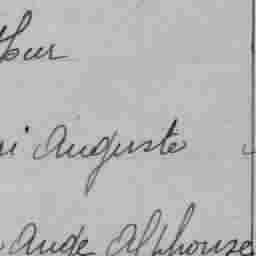 i Auguste
Aude Alphonse